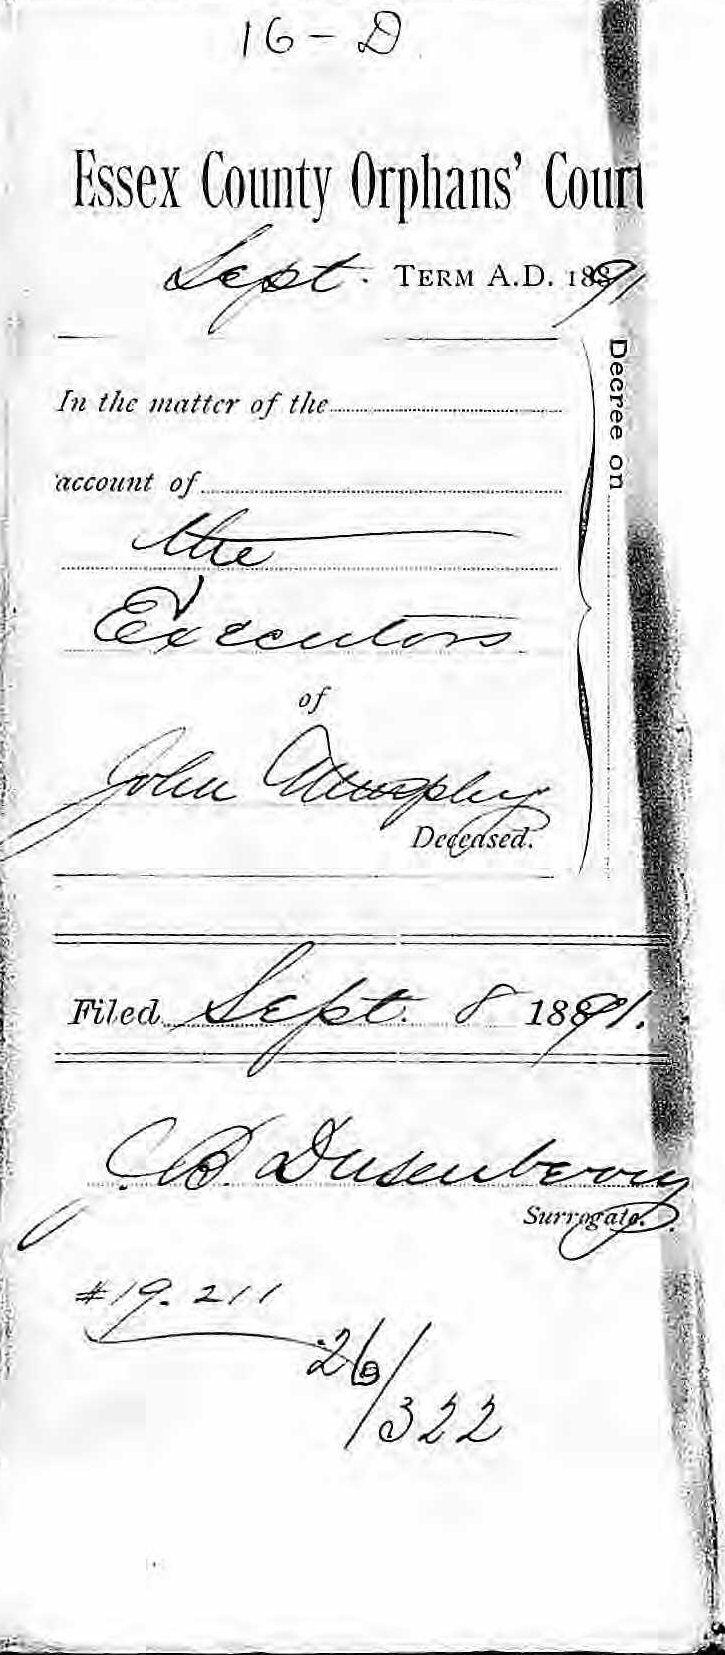 16 - D
Essex County Orphans' Court
Sept. TERM A.D. 1891
In the matter of the
account of
the
Executors
of
John Murphy
Deceased.
Decree on
Filed Sept. 8 1891.
C. B. Dusenberry
Surrogate.
#19.211
26/322